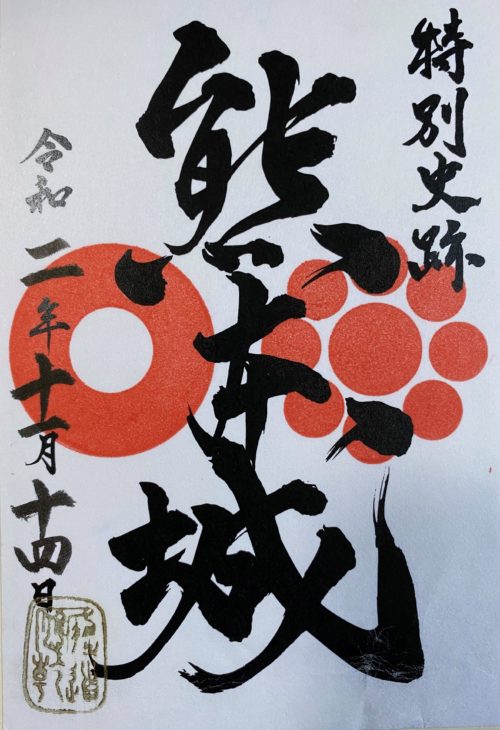 特別史跡
熊本城
令和二年十一月十四日